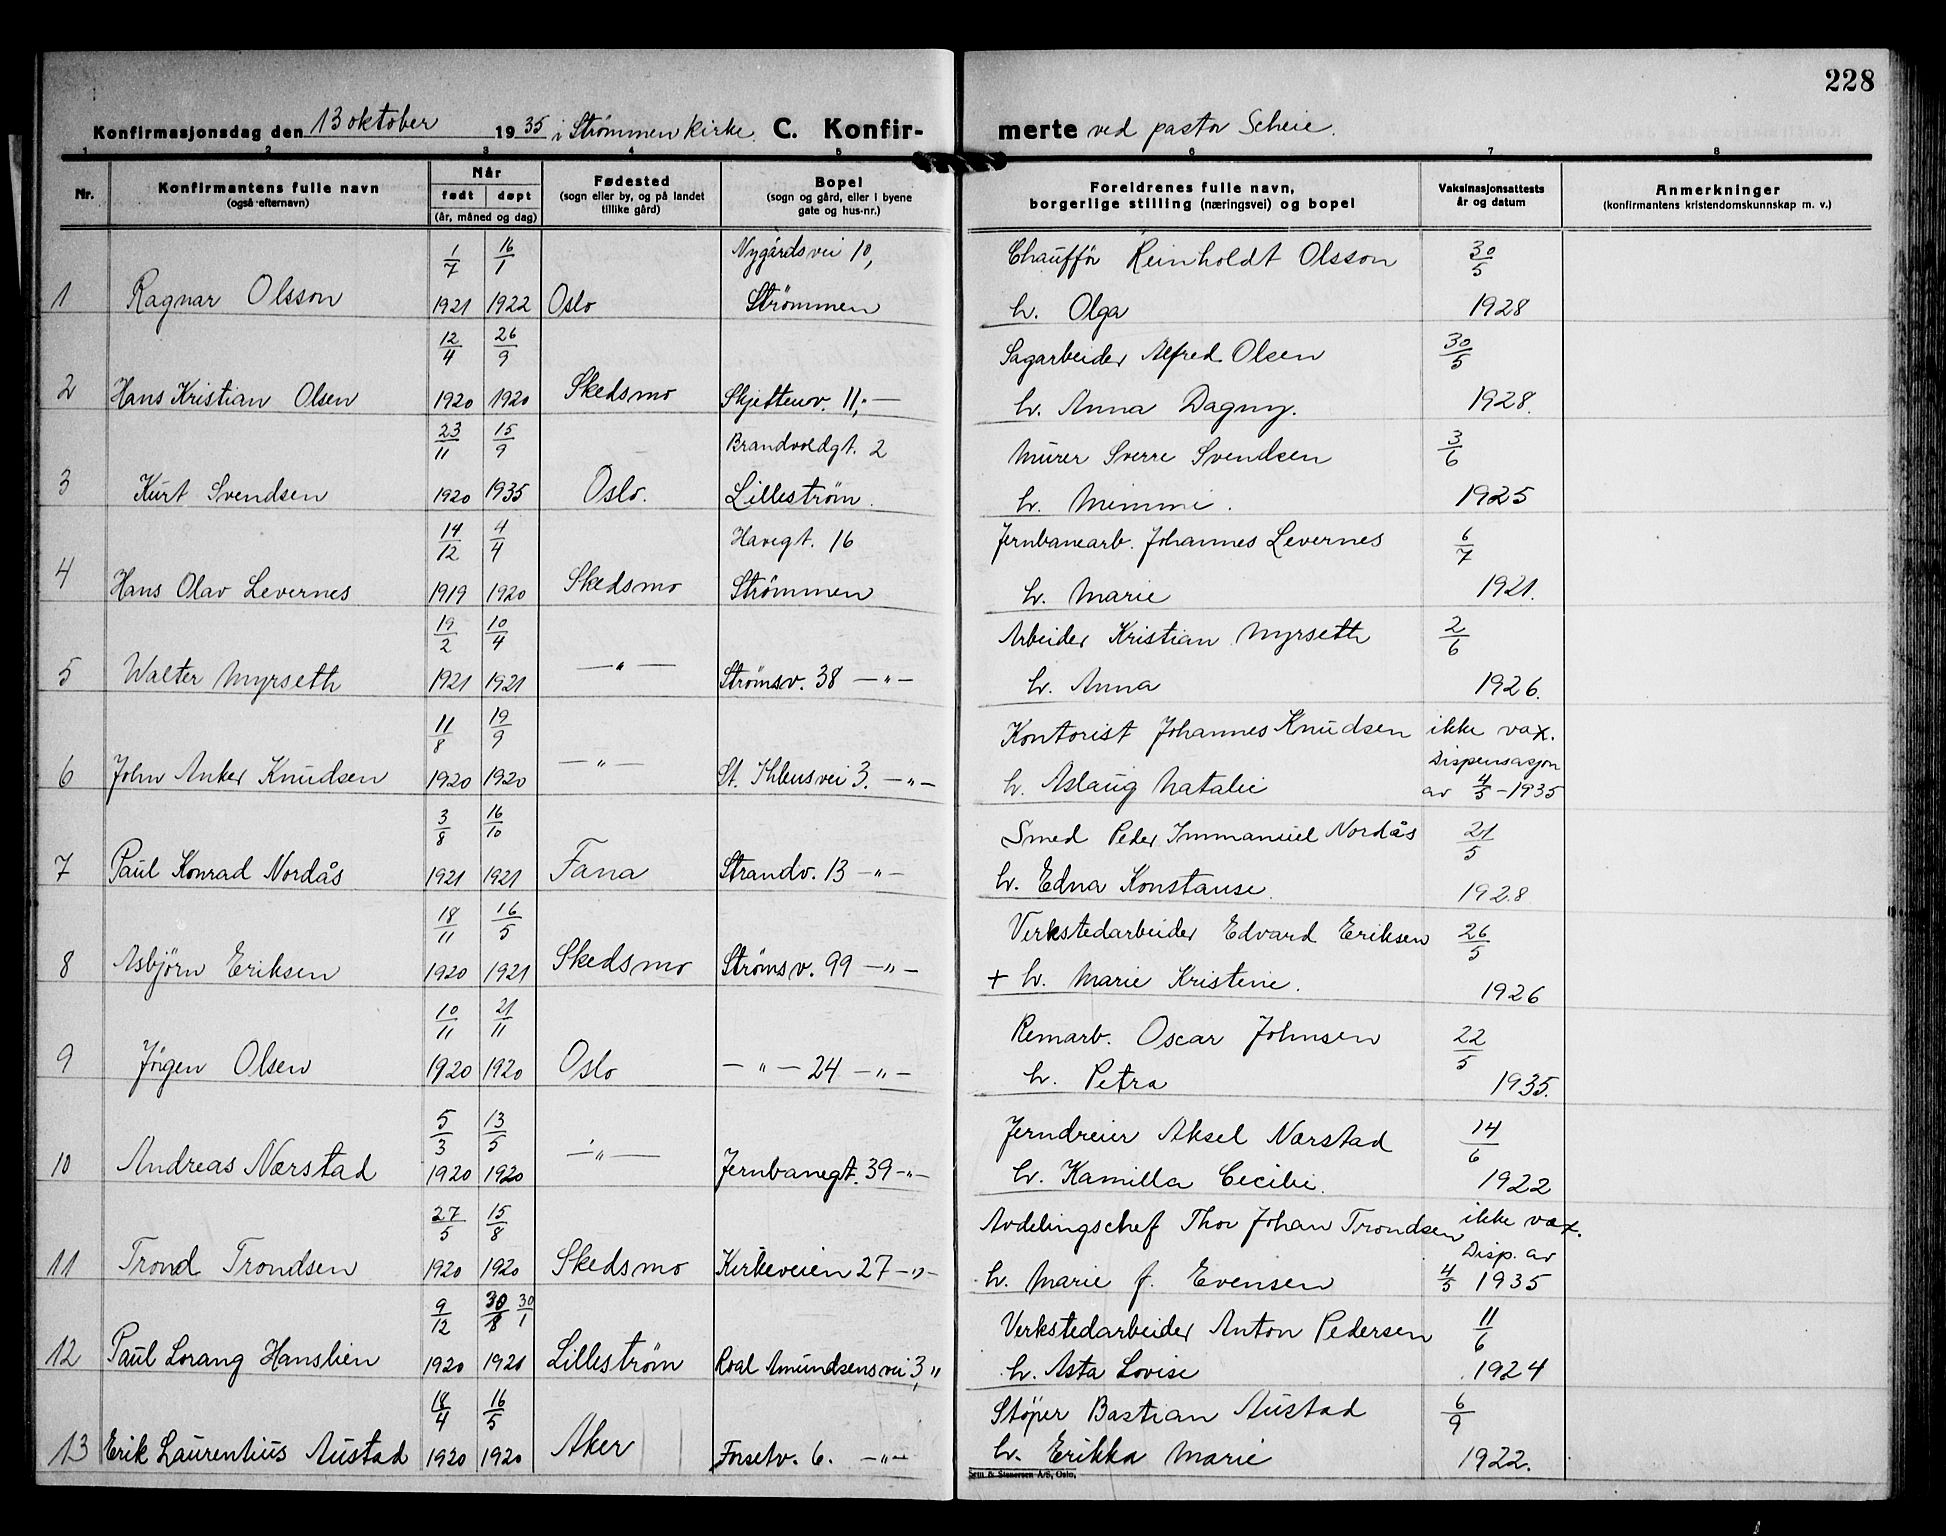 228
Konfirmasjonsdag den 13 oktober 1935 i Strømmen kirke. C. Konfir- merte ved pastor Scheie.
1 2 3 4 5 6 7 8
Nr.
Konfirmantens fulle navn
(også efternavn)
Når
født døpt
(år, måned og dag)
Fødested
(sogn eller by, og på landet
tillike gård)
Bopel
(sogn og gård, eller i byene
gate og hus-nr.)
Foreldrenes fulle navn,
borgerlige stilling (næringsvei) og bopel
Vaksinasjonsattests
år og datum
Anmerkninger
(konfirmantens kristendomskunnskap m. v.)
1/7 16/1 Nygårdsvei 10, Chauffør Reinholdt Olsson 30/5
1 Ragnar Olsson 1921 1922 Oslo Strömmen h. Olga 1928
12/4 26/9 Sagarbeider Alfred Olsen 30/5
2 Hans Kristian Olsen 1920 1920 Skedsmo Skjettenv. 11, - — h. Anna Dagny. 1928.
23/11 15/9 Brandvoldgt. 2 Murer Sverre Svendsen 3/6
3 Kurt Svendsen 1920 1935 Oslo. Lilleström. h. Mimmi. 1925
14/12 4/4 Havegt. 16 Jernbanearb. Johannes Levernes 6/7
4 Hans Olav Levernes 1919 1920 Skedsmo Strömmen h. Marie 1921.
19/2 10/4 Arbeider Kristian Myrseth 2/6
5 Walter Myrseth 1921 1921 — " — Strömsv. 38 — " — h. Anna 1926.
11/8 19/9 Kontorist Johannes Knudsen ikke vax.
6 John Anker Knudsen 1920 1920 — " — St. 3. — " — h. Aslaug Natalie Dispensasjon
av 4/5 - 1935
3/8 16/10 Smed Peder Immanuel Nordås 21/5
7 Paul Konrad Nordås 1921 1921 Fana Strandv. 13 — " — h. Edna Konstanse. 1928
18/11 16/5 Verkstedarbeider Edvard Eriksen 26/5
8 Asbjörn Eriksen 1920 1921 Skedsmo Strömsv. 99 — " — + h. Marie Kristine. 1926
10/11 21/11 Remarb. Oscar Johnsen 22/5
9 Jörgen Olsen 1920 1920 Oslo — " — 24 — " — h. Petra 1935.
5/3 13/5 Jerndreier Aksel Nærstad 14/6
10 Andreas Nærstad 1920 1920 — " — Jernbanegt. 39 — " — h. Kamilla Cecilie. 1922
27/5 15/8 Avdelingschef Thor Johan Trondsen ikke vax.
Disp. av
11 Trond Trondsen 1920 1920 Skedsmo Kirkeveien 27 — " — h. Marie f. Evensen 4/5 1935
9/12 30/8 30/1 Verkstedarbeider Anton Pedersen 11/6
12 Paul Lorang Hanslien 1920 1921 Lilleström Roal Amundsensvei 3, " h. Asta Lovise 1924
18/4 16/5 Støper Bastian Austad 6/9
13 Erik Laurentius Austad 1920 1920 Aker Forsetv. 6. — " — h. Erikka Marie 1922.
Sem & Stenersen A/S, Oslo.